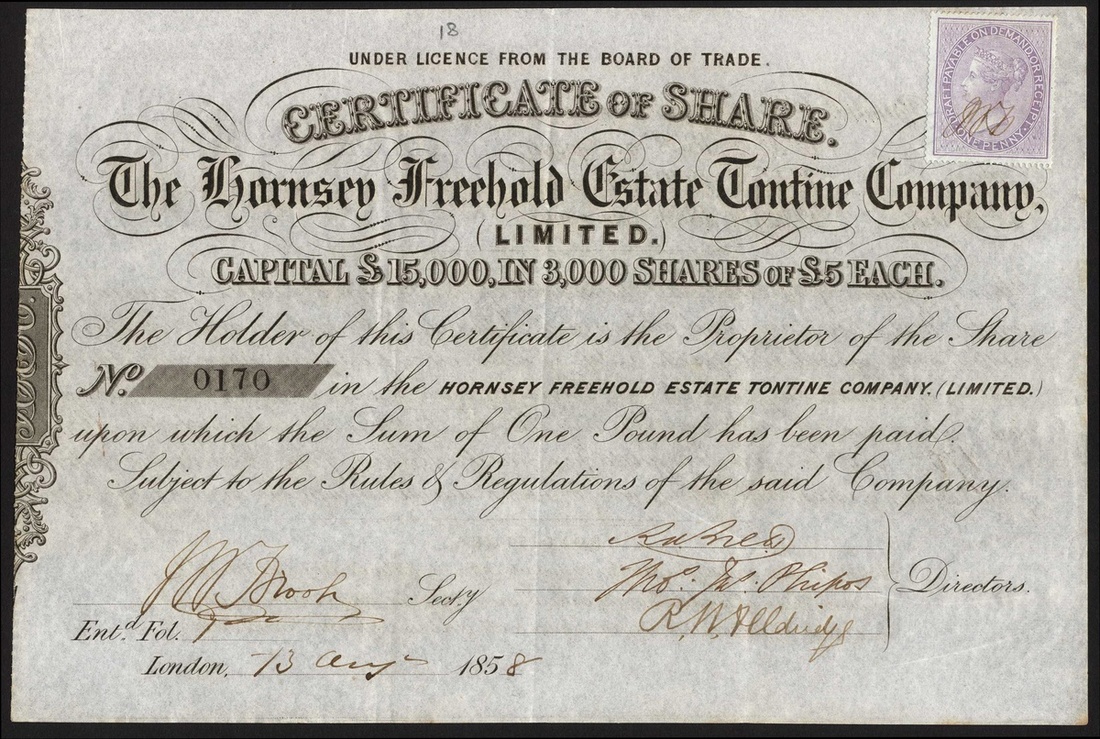 18
UNDER LICENCE FROM THE BOARD OF TRADE.
CERTIFICATE OF SHARE.
DRAFT PAYABLE ON DEMAND OR RECEIPT
ONE PENNY
The Hornsey Freehold Estate Tontine Company,
(LIMITED.)
CAPITAL £15,000, IN 3,000 SHARES OF £5 EACH.
The Holder of this Certificate is the Proprietor of the Share
No. 0170 in the HORNSEY FREEHOLD ESTATE TONTINE COMPANY, (LIMITED.)
upon which the Sum of One Pound has been paid.
Subject to the Rules & Regulations of the said Company.
Secty
Thos. Phipps
R. W. Alldridge
Directors.
Entd. Fol.
London, 13 Augt 1858